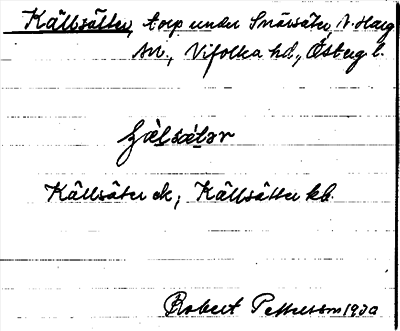 Källsätter, torp under Snärsäter, N. Harg
sn., Vifolka hd., Österg l.
Källsäter ek, Källsätter kb.
Robert Pettersson 1930